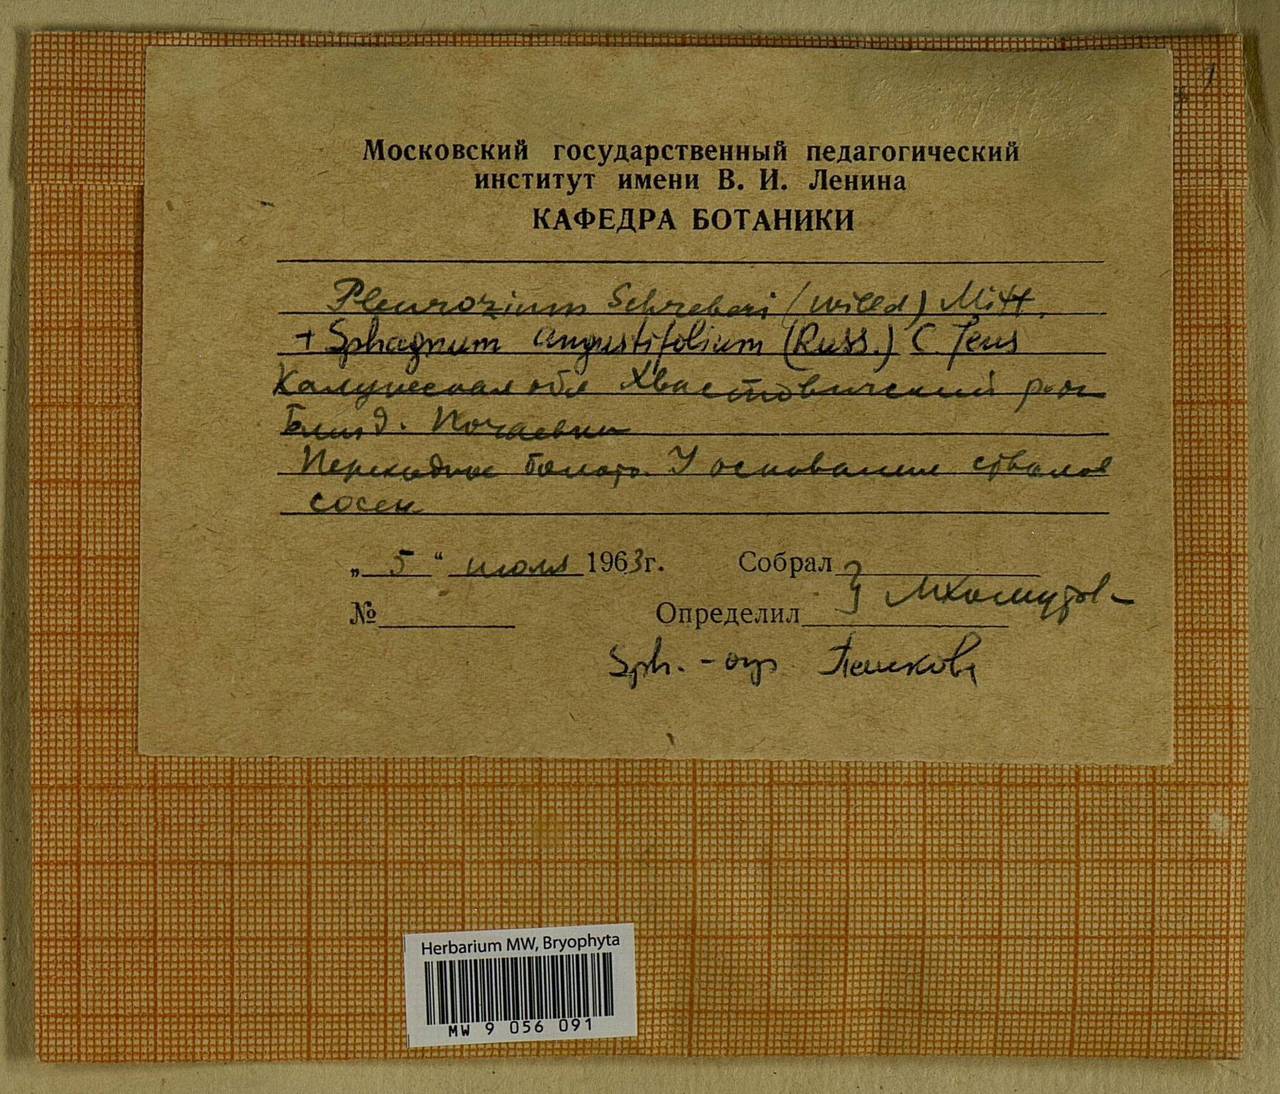 Московский государственный педагогический
институт имени В. И. Ленина
КАФЕДРА БОТАНИКИ
Pleurozium Schreberi (Willd) Mitt.
+ Sphagnum angustifolium (Russ.) C. Jens
Калужская обл Хвастовичский р-он
Близ д. Почаевки
Переходное болото. У основания стволов
сосен
„ 5 “ июля 1963г. Собрал
№ Определил
Sph. - опр.
Herbarium MW, Bryophyta
MW 9 056 091